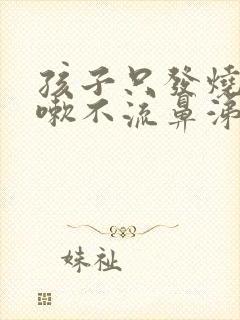 孩子只發燒
嗽不流鼻涕
妹祉